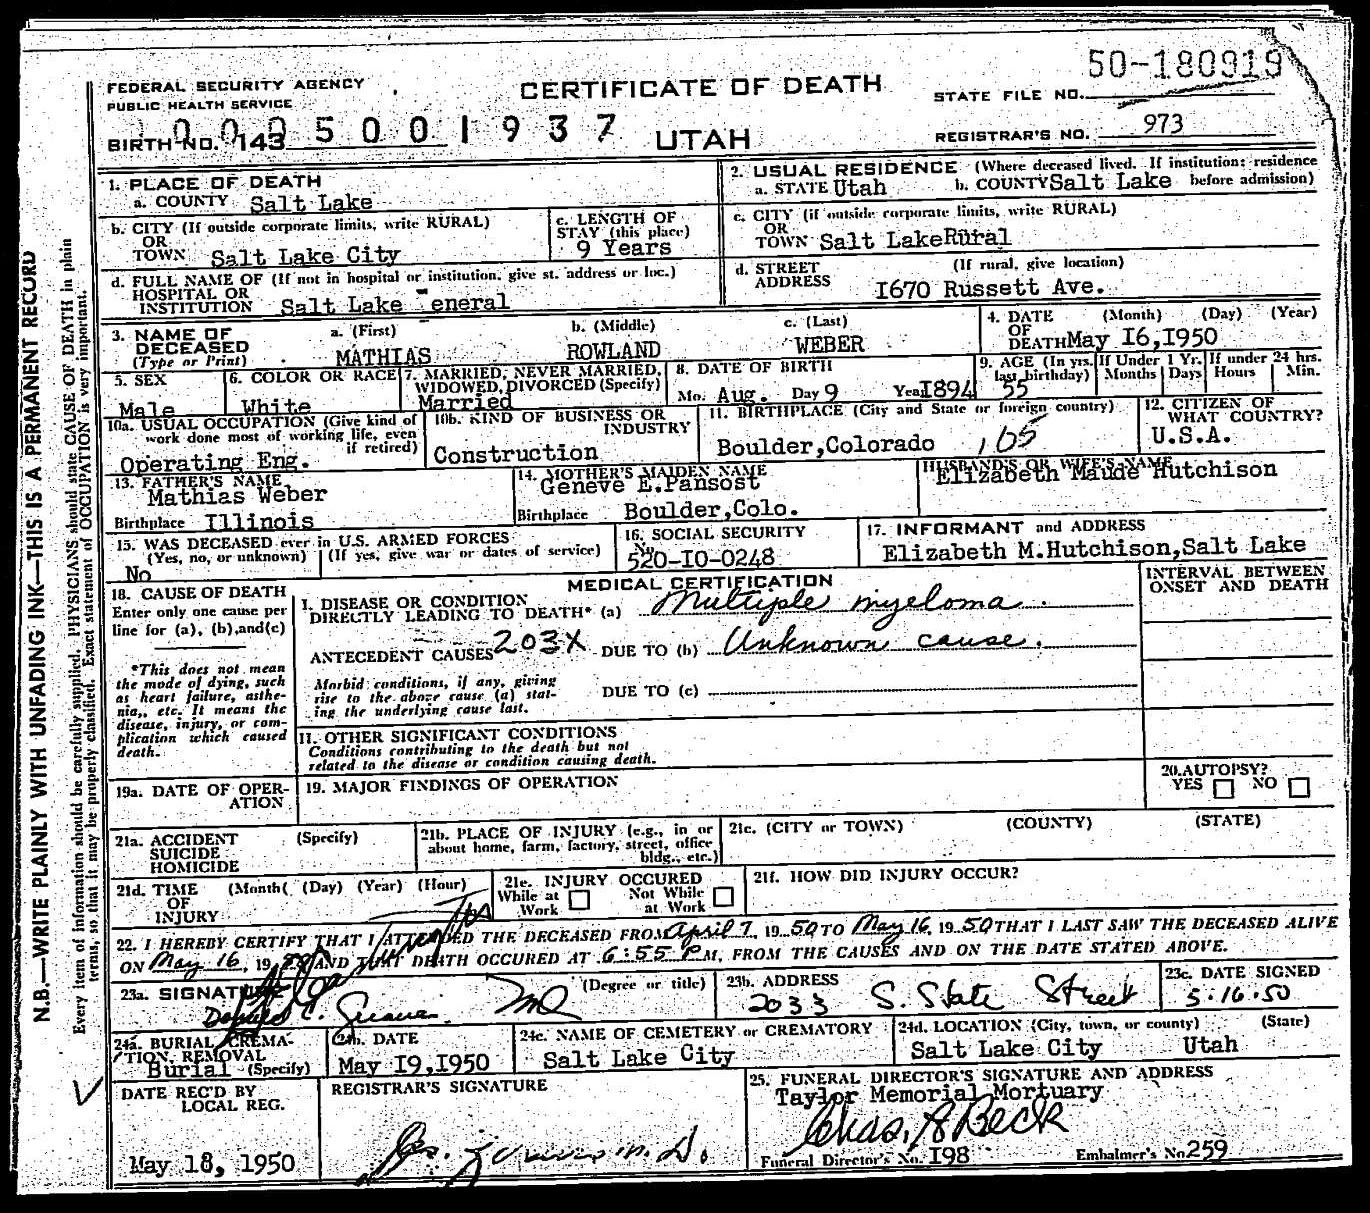 50-180919
FEDERAL SECURITY AGENCY
PUBLIC HEALTH SERVICE
CERTIFICATE OF DEATH
STATE FILE NO.
BIRTH NO. 143
5 0 0 1 9 3 7
UTAH
REGISTRAR'S NO. 973
1. PLACE OF DEATH
a. COUNTY Salt Lake
2. USUAL RESIDENCE (Where deceased lived. If institution: residence
a. STATE Utah b. COUNTY Salt Lake before admission)
b. CITY (If outside corporate limits, write RURAL)
OR
TOWN Salt Lake City
c. LENGTH OF
STAY (this place)
9 Years
c. CITY (if outside corporate limits, write RURAL)
OR
TOWN Salt LakeRural
d. FULL NAME OF (If not in hospital or institution, give st. address or loc.)
HOSPITAL OR
INSTITUTION Salt Lake eneral
d. STREET (If rural, give location)
ADDRESS
I670 Russett Ave.
3. NAME OF
DECEASED
(Type or Print)
a. (First) b. (Middle) c. (Last)
MATHIAS ROWLAND WEBER
4. DATE (Month) (Day) (Year)
OF
DEATH May I6,1950
5. SEX
Male
6. COLOR OR RACE
White
7. MARRIED, NEVER MARRIED,
WIDOWED, DIVORCED (Specify)
Married
8. DATE OF BIRTH
Mo. Aug. Day 9 Year I894
9. AGE (In yrs.
last birthday)
55
If Under 1 Yr.
Months Days
If under 24 hrs.
Hours Min.
10a. USUAL OCCUPATION (Give kind of
work done most of working life, even
if retired)
Operating Eng.
10b. KIND OF BUSINESS OR
INDUSTRY
Construction
11. BIRTHPLACE (City and State or foreign country)
Boulder,Colorado 105
12. CITIZEN OF
WHAT COUNTRY?
U.S.A.
13. FATHER'S NAME
Mathias Weber
Birthplace Illinois
14. MOTHER'S MAIDEN NAME
Geneve E.Pansost
Birthplace Boulder,Colo.
HUSBAND'S OR WIFE'S NAME
Elizabeth Maude Hutchison
15. WAS DECEASED ever in U.S. ARMED FORCES
(Yes, no, or unknown) (If yes, give war or dates of service)
No
16. SOCIAL SECURITY
No.
520-I0-0248
17. INFORMANT and ADDRESS
Elizabeth M.Hutchison,Salt Lake
18. CAUSE OF DEATH
Enter only one cause per
line for (a), (b),and(c)
*This does not mean
the mode of dying, such
as heart failure, asthe-
nia,, etc. It means the
disease, injury, or com-
plication which caused
death.
MEDICAL CERTIFICATION
I. DISEASE OR CONDITION
DIRECTLY LEADING TO DEATH* (a) Multiple myeloma
ANTECEDENT CAUSES 203X DUE TO (b) Unknown cause.
Morbid conditions, if any, giving
rise to the above cause (a) stat-
ing the underlying cause last.
DUE TO (c)
11. OTHER SIGNIFICANT CONDITIONS
Conditions contributing to the death but not
related to the disease or condition causing death.
INTERVAL BETWEEN
ONSET AND DEATH
19a. DATE OF OPER-
ATION
19. MAJOR FINDINGS OF OPERATION
20. AUTOPSY?
YES NO
21a. ACCIDENT (Specify)
SUICIDE
HOMICIDE
21b. PLACE OF INJURY (e.g., in or
about home, farm, factory, street, office
bldg., etc.)
21c. (CITY or TOWN) (COUNTY) (STATE)
21d. TIME (Month( (Day) (Year) (Hour)
OF
INJURY
21e. INJURY OCCURED
While at Work
Not While at Work
21f. HOW DID INJURY OCCUR?
22. I HEREBY CERTIFY THAT I ATTENDED THE DECEASED FROM April 7, 19 50 TO May 16, 19 50 THAT I LAST SAW THE DECEASED ALIVE
ON May 16, 19 50 AND THAT DEATH OCCURED AT 6:55 P M, FROM THE CAUSES AND ON THE DATE STATED ABOVE.
23a. SIGNATURE (Degree or title)
MD
23b. ADDRESS
2033 S. State Street
23c. DATE SIGNED
5-16-50
24a. BURIAL, CREMA-
TION, REMOVAL
Burial (Specify)
24b. DATE
May I9,1950
24c. NAME OF CEMETERY or CREMATORY
Salt Lake City
24d. LOCATION (City, town, or county) (State)
Salt Lake City Utah
DATE REC'D BY
LOCAL REG.
May 18, 1950
REGISTRAR'S SIGNATURE
M.D.
25. FUNERAL DIRECTOR'S SIGNATURE AND ADDRESS
Taylor Memorial Mortuary
Chas. A Beck
Funeral Director's No. I98 Embalmer's No. 259
N.B.—WRITE PLAINLY WITH UNFADING INK—THIS IS A PERMANENT RECORD
Every item of information should be carefully supplied. PHYSICIANS should state CAUSE OF DEATH in plain
terms, so that it may be properly classified. Exact statement of OCCUPATION is very important.